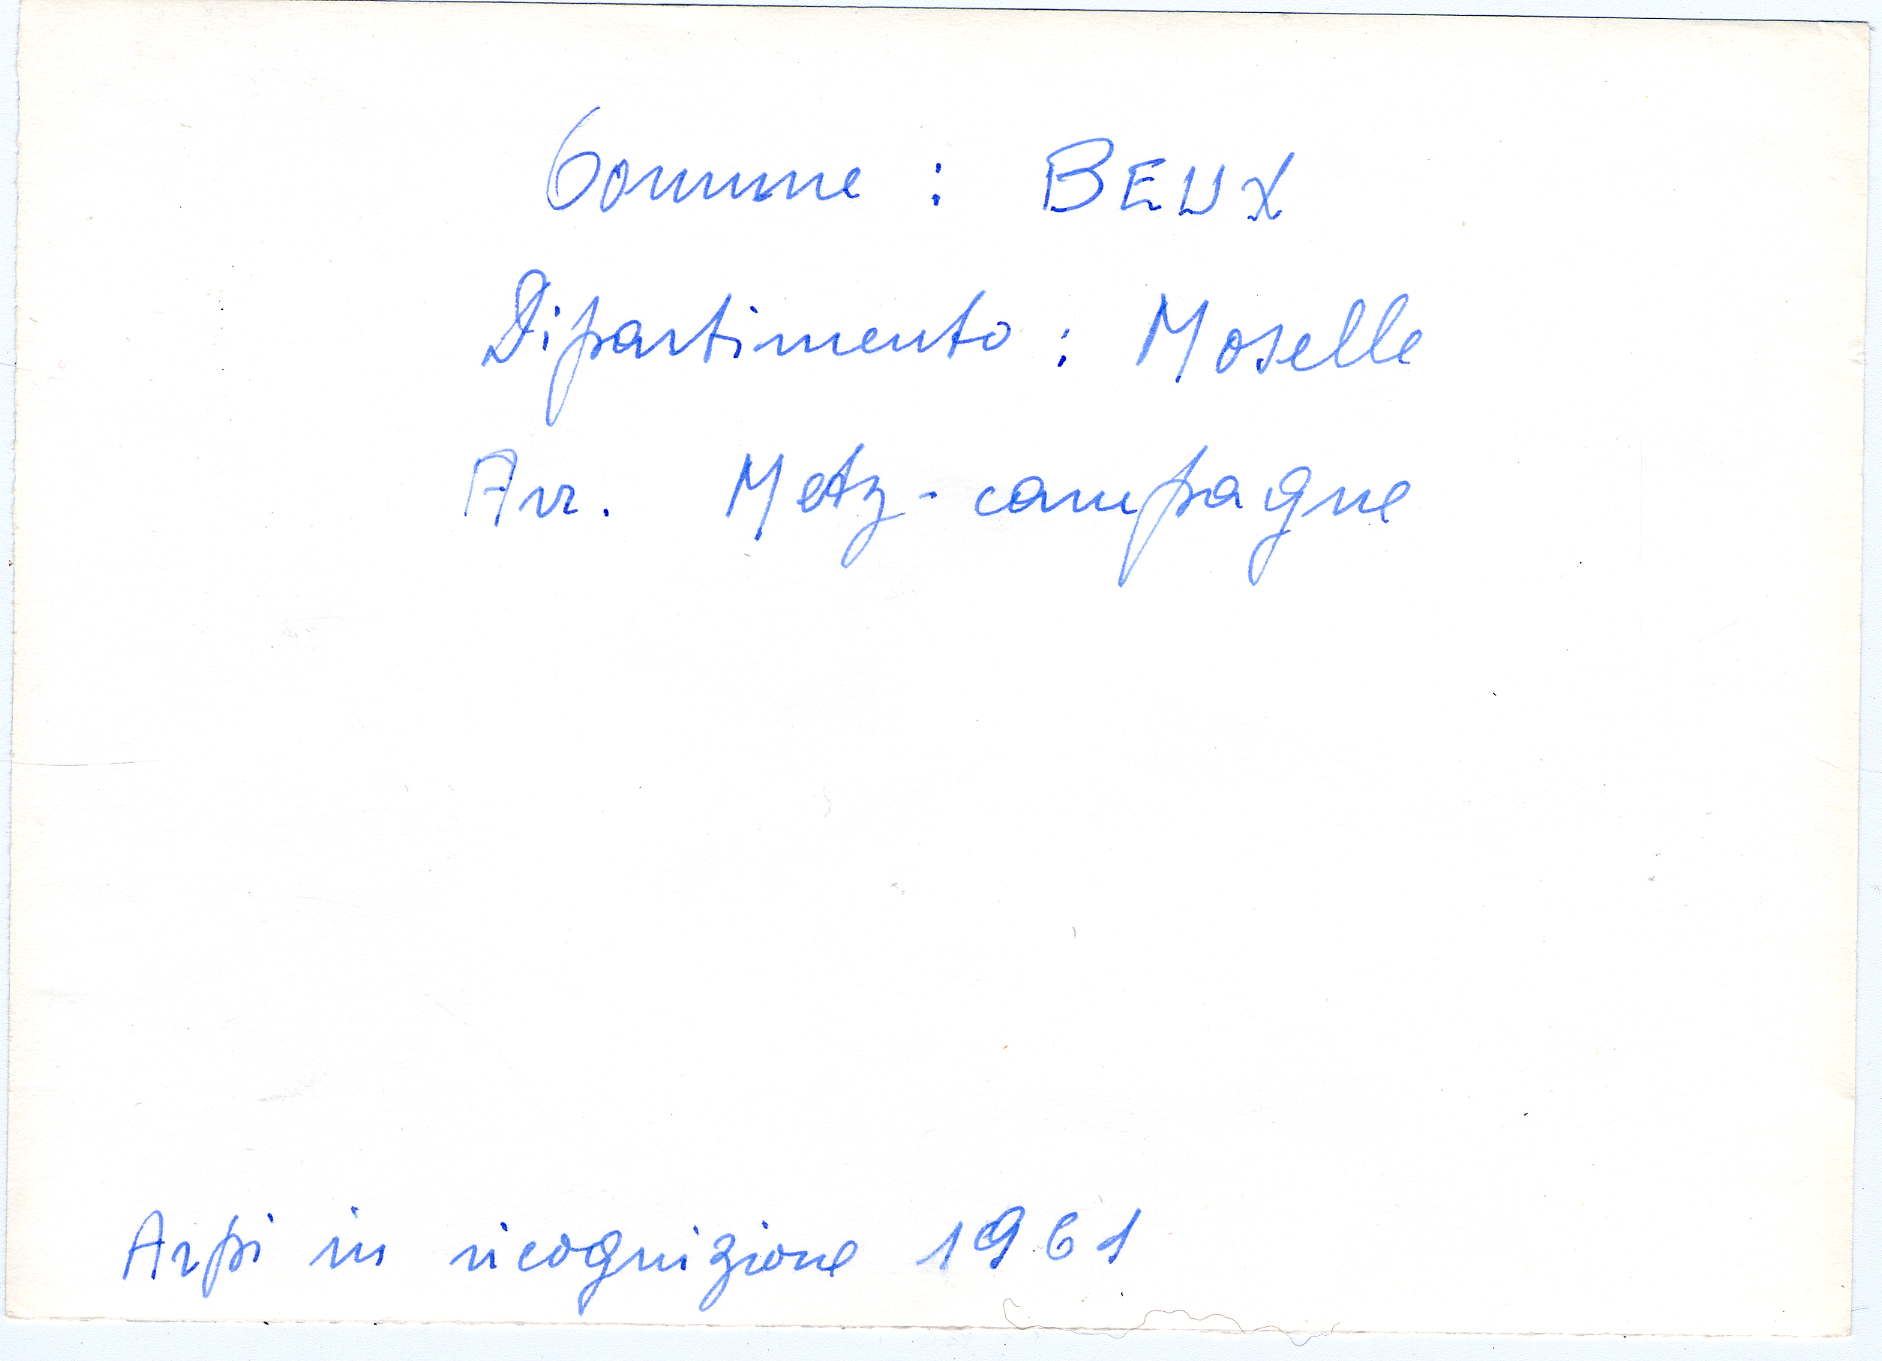 Comune : BEUX
Dipartimento : Moselle
Arr. Metz-campagne
Arpi in ricognizione 1961